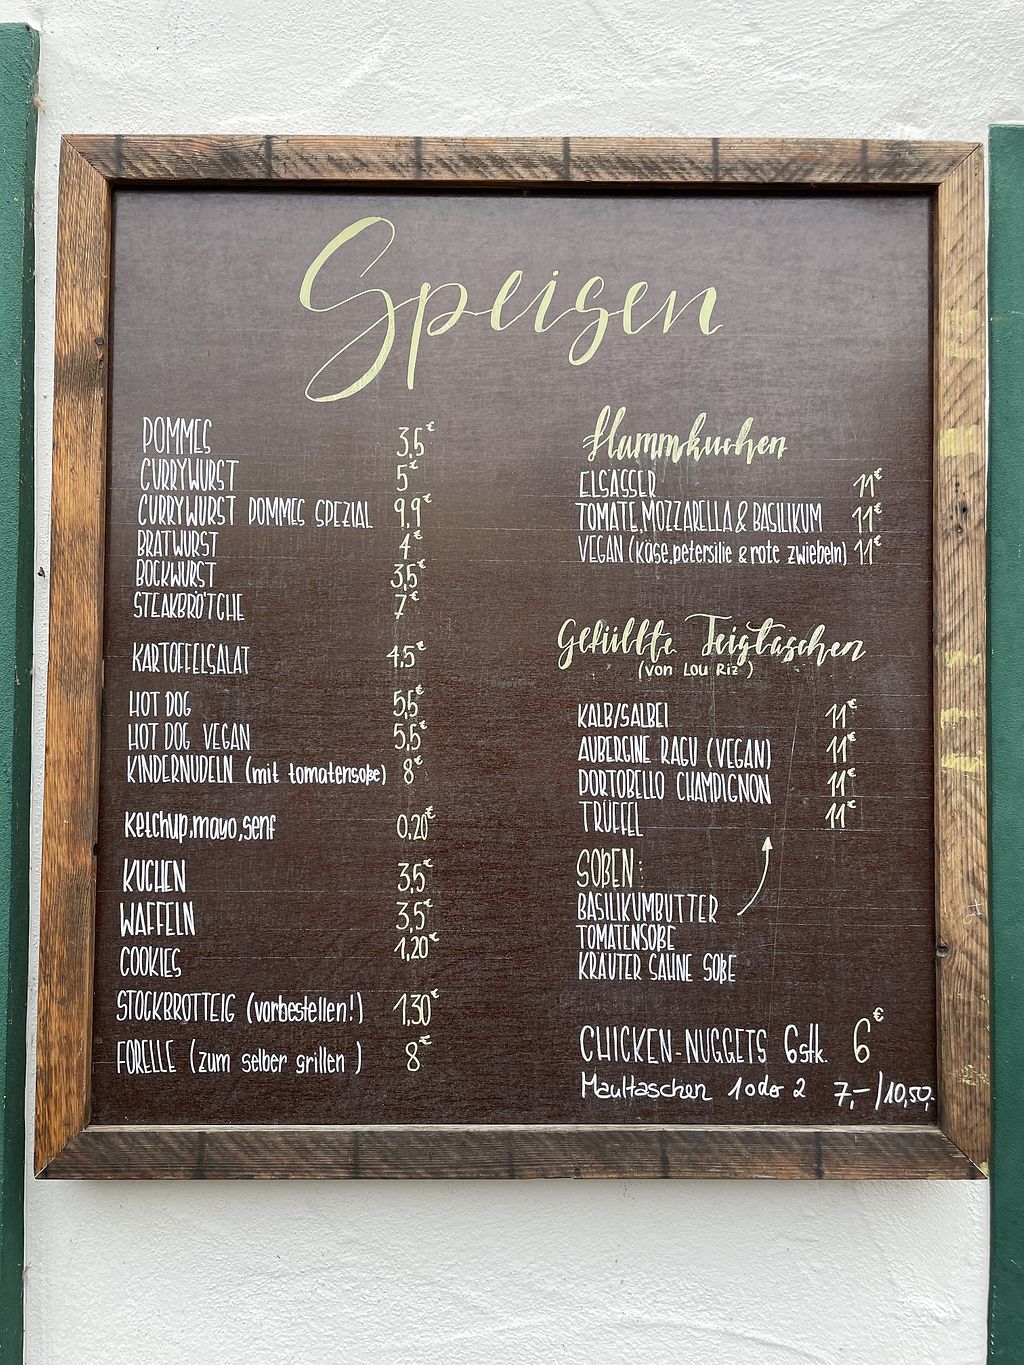 Speisen
POMMES 3,5€
CURRYWURST 5€
CURRYWURST POMMES SPEZIAL 9,9€
BRATWURST 4€
BOCKWURST 3,5€
STEAKBRÖTCHE 7€
KARTOFFELSALAT 4,5€
HOT DOG 5,5€
HOT DOG VEGAN 5,5€
KINDERNUDELN (mit tomatensoße) 8€
Ketchup,mayo,senf 0,20€
KUCHEN 3,5€
WAFFELN 3,5€
COOKIES 1,20€
STOCKBROTTEIG (vorbestellen!) 1,30€
FORELLE (zum selber grillen) 8€
Flammkuchen
ELSÄSSER 11€
TOMATE,MOZZARELLA & BASILIKUM 11€
VEGAN (Käse,petersilie & rote zwiebeln) 11€
Gefüllte Teigtaschen
(von Lou Riz)
KALB/SALBEI 11€
AUBERGINE RAGU (VEGAN) 11€
PORTOBELLO CHAMPIGNON 11€
TRÜFFEL 11€
SOßEN:
BASILIKUMBUTTER
TOMATENSOßE
KRÄUTER SAHNE SOßE
CHICKEN-NUGGETS 6stk. 6€
Maultaschen 1 oder 2 7,-/10,50,-